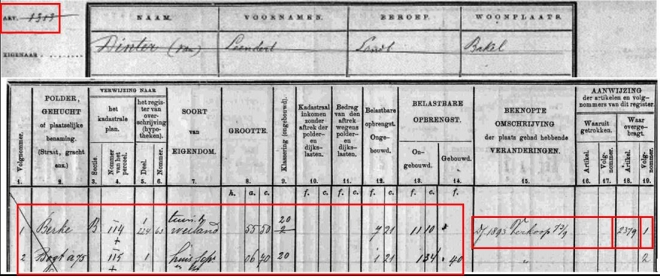 ART. 1313
EIGENAAR
NAAM. VOORNAMEN. BEROEP. WOONPLAATS.
Dinter (van) Leendert Landb Bakel
Volgnommer.
POLDER, GEHUCHT of plaatselijke benaming. (Straat, gracht enz.)
VERWIJZING NAAR
het kadastrale plan.
Sectie.
Nommer van het perceel.
het register van overschrijving (hypotheken).
Deel.
Nommer.
SOORT van EIGENDOM.
GROOTTE.
Klassering (ongebouwd).
Kadastraal inkomen zonder aftrek der polder- en dijkslasten.
Bedrag van den aftrek wegens polder- en dijkslasten.
Belastbare opbrengst. Ongebouwd.
BELASTBARE OPBRENGST.
Ongebouwd.
Gebouwd.
BEKNOPTE OMSCHRIJVING der plaats gehad hebbende VERANDERINGEN.
AANWIJZING der artikelen en volgnommers van dit register.
Waaruit getrokken.
Waar overgebragt.
Artikel.
Volgnommer.
Artikel.
Volgnommer.
1. 2. 3. 4. 5. 6. 7. 8. 9. 10. 11. 12. 13. 14. 15. 16. 17. 18. 19.
H. a. c. f. c. f. c. f. c. f. c. f.
1 Berke B 114 weiland 55 50 20 21 11 10 Dj 1893 Verkoop 2379 1
2 115 1 huis 20 121 40 2